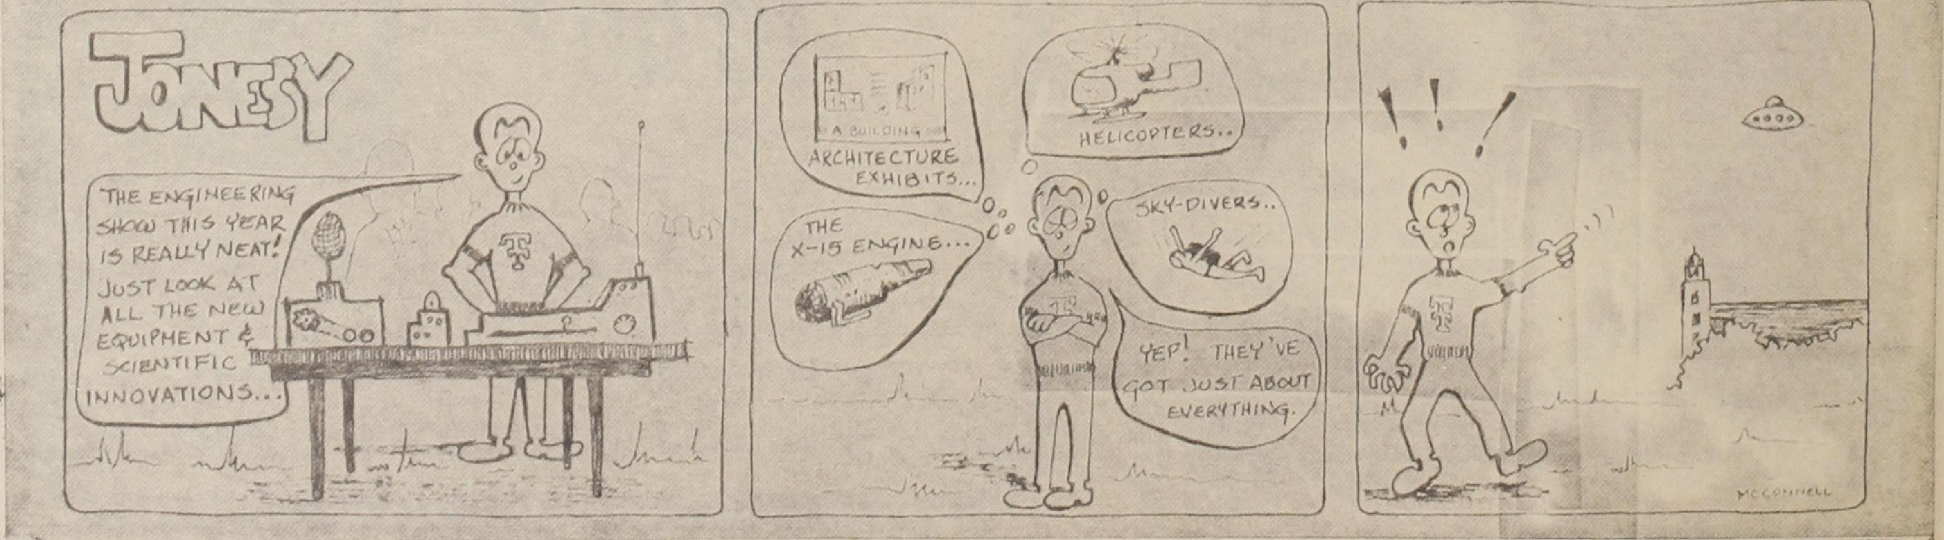 JONESY
THE ENGINEERING
SHOW THIS YEAR
IS REALLY NEAT!
JUST LOOK AT
ALL THE NEW
EQUIPMENT &
SCIENTIFIC
INNOVATIONS...
T
A BUILDING
ARCHITECTURE
EXHIBITS...
HELICOPTERS..
THE
X-15 ENGINE...
SKY-DIVERS..
T
YEP! THEY'VE
GOT JUST ABOUT
EVERYTHING.
! ! !
T
MCCONNELL